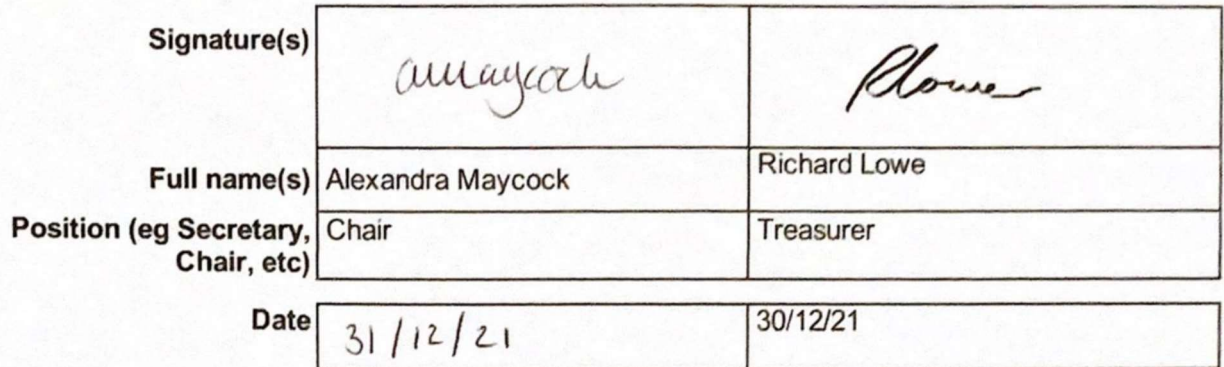 Signature(s)
amaycock
RLowe
Full name(s) Alexandra Maycock Richard Lowe
Position (eg Secretary, Chair Treasurer
Chair, etc)
Date 31/12/21 30/12/21